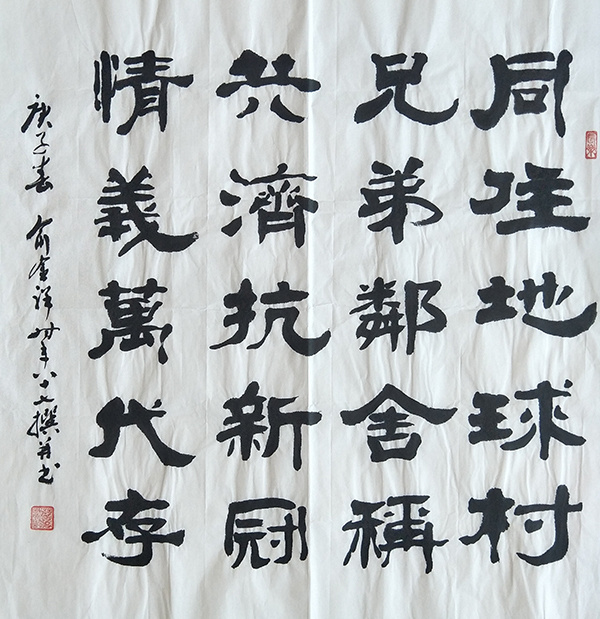 同住地球村
兄弟鄰舍稱
共濟抗新冠
情義萬代存
庚子春 俞金祥 时年八十七撰并书